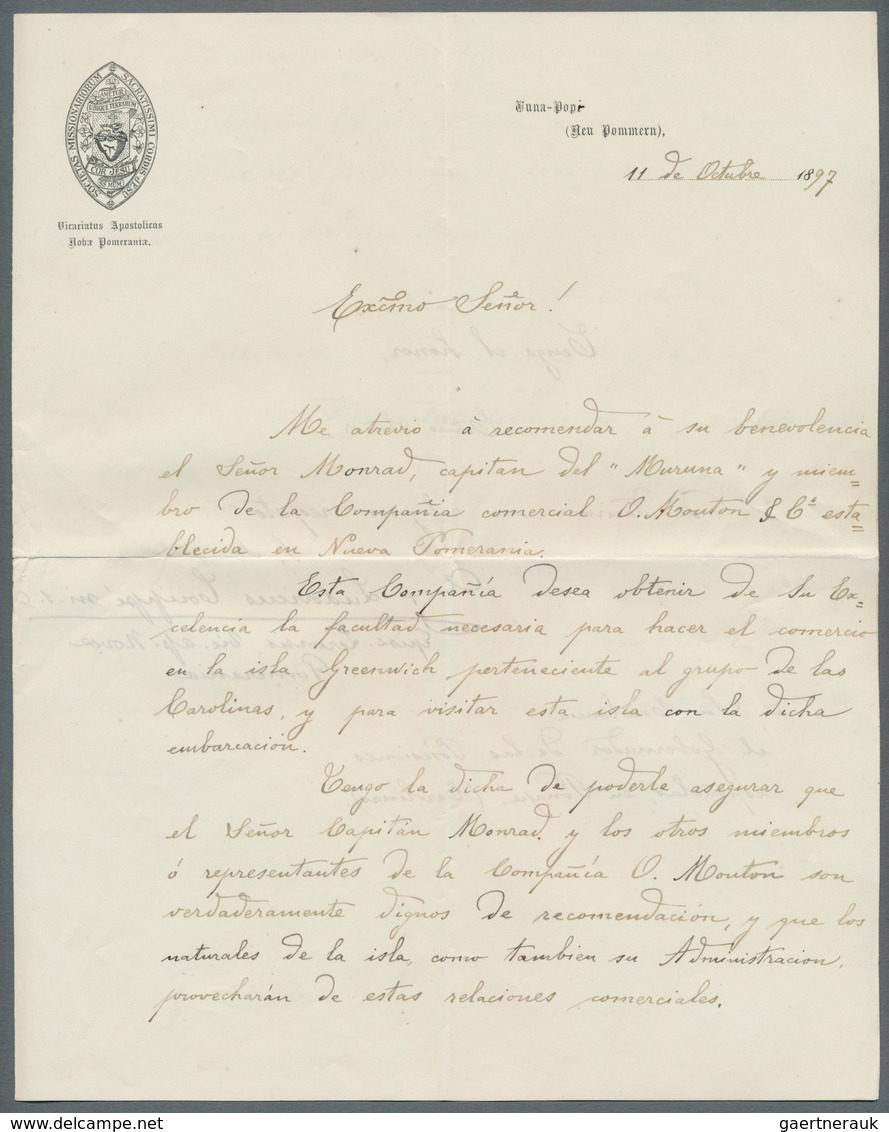 SOCIETAS MISSIONARIORUM SACRATISSIMI CORDIS JESU
AMETUR
UBIQUE TERRARUM
COR JESU
SS MCMJ
Vicariatus Apostolicus
Novæ Pomeraniæ.
Vuna-Pope
(Neu Pommern),
11 de Octubre 1897
Excmo Señor!
Me atrevio á recomendar á su benevolencia
el Señor Monrad, capitan del "Muruna" y miem=
bro de la Compañia comercial O. Mouton & Cª esta=
blecida en Nueva Pomerania.
Esta Compañía desea obtener de Su Ex=
celencia la facultad necesaria para hacer el comercio
en la isla Greenwich perteneciente al grupo de las
Carolinas, y para visitar esta isla con la dicha
embarcación.
Tengo la dicha de poderle asegurar que
el Señor Capitán Monrad y los otros miembros
ó representantes de la Compañía O. Mouton son
verdaderamente dignos de recomendación, y que los
naturales de la isla, como tambien su Administracion,
provecharán de estas relaciones comerciales.
gaertnerauk